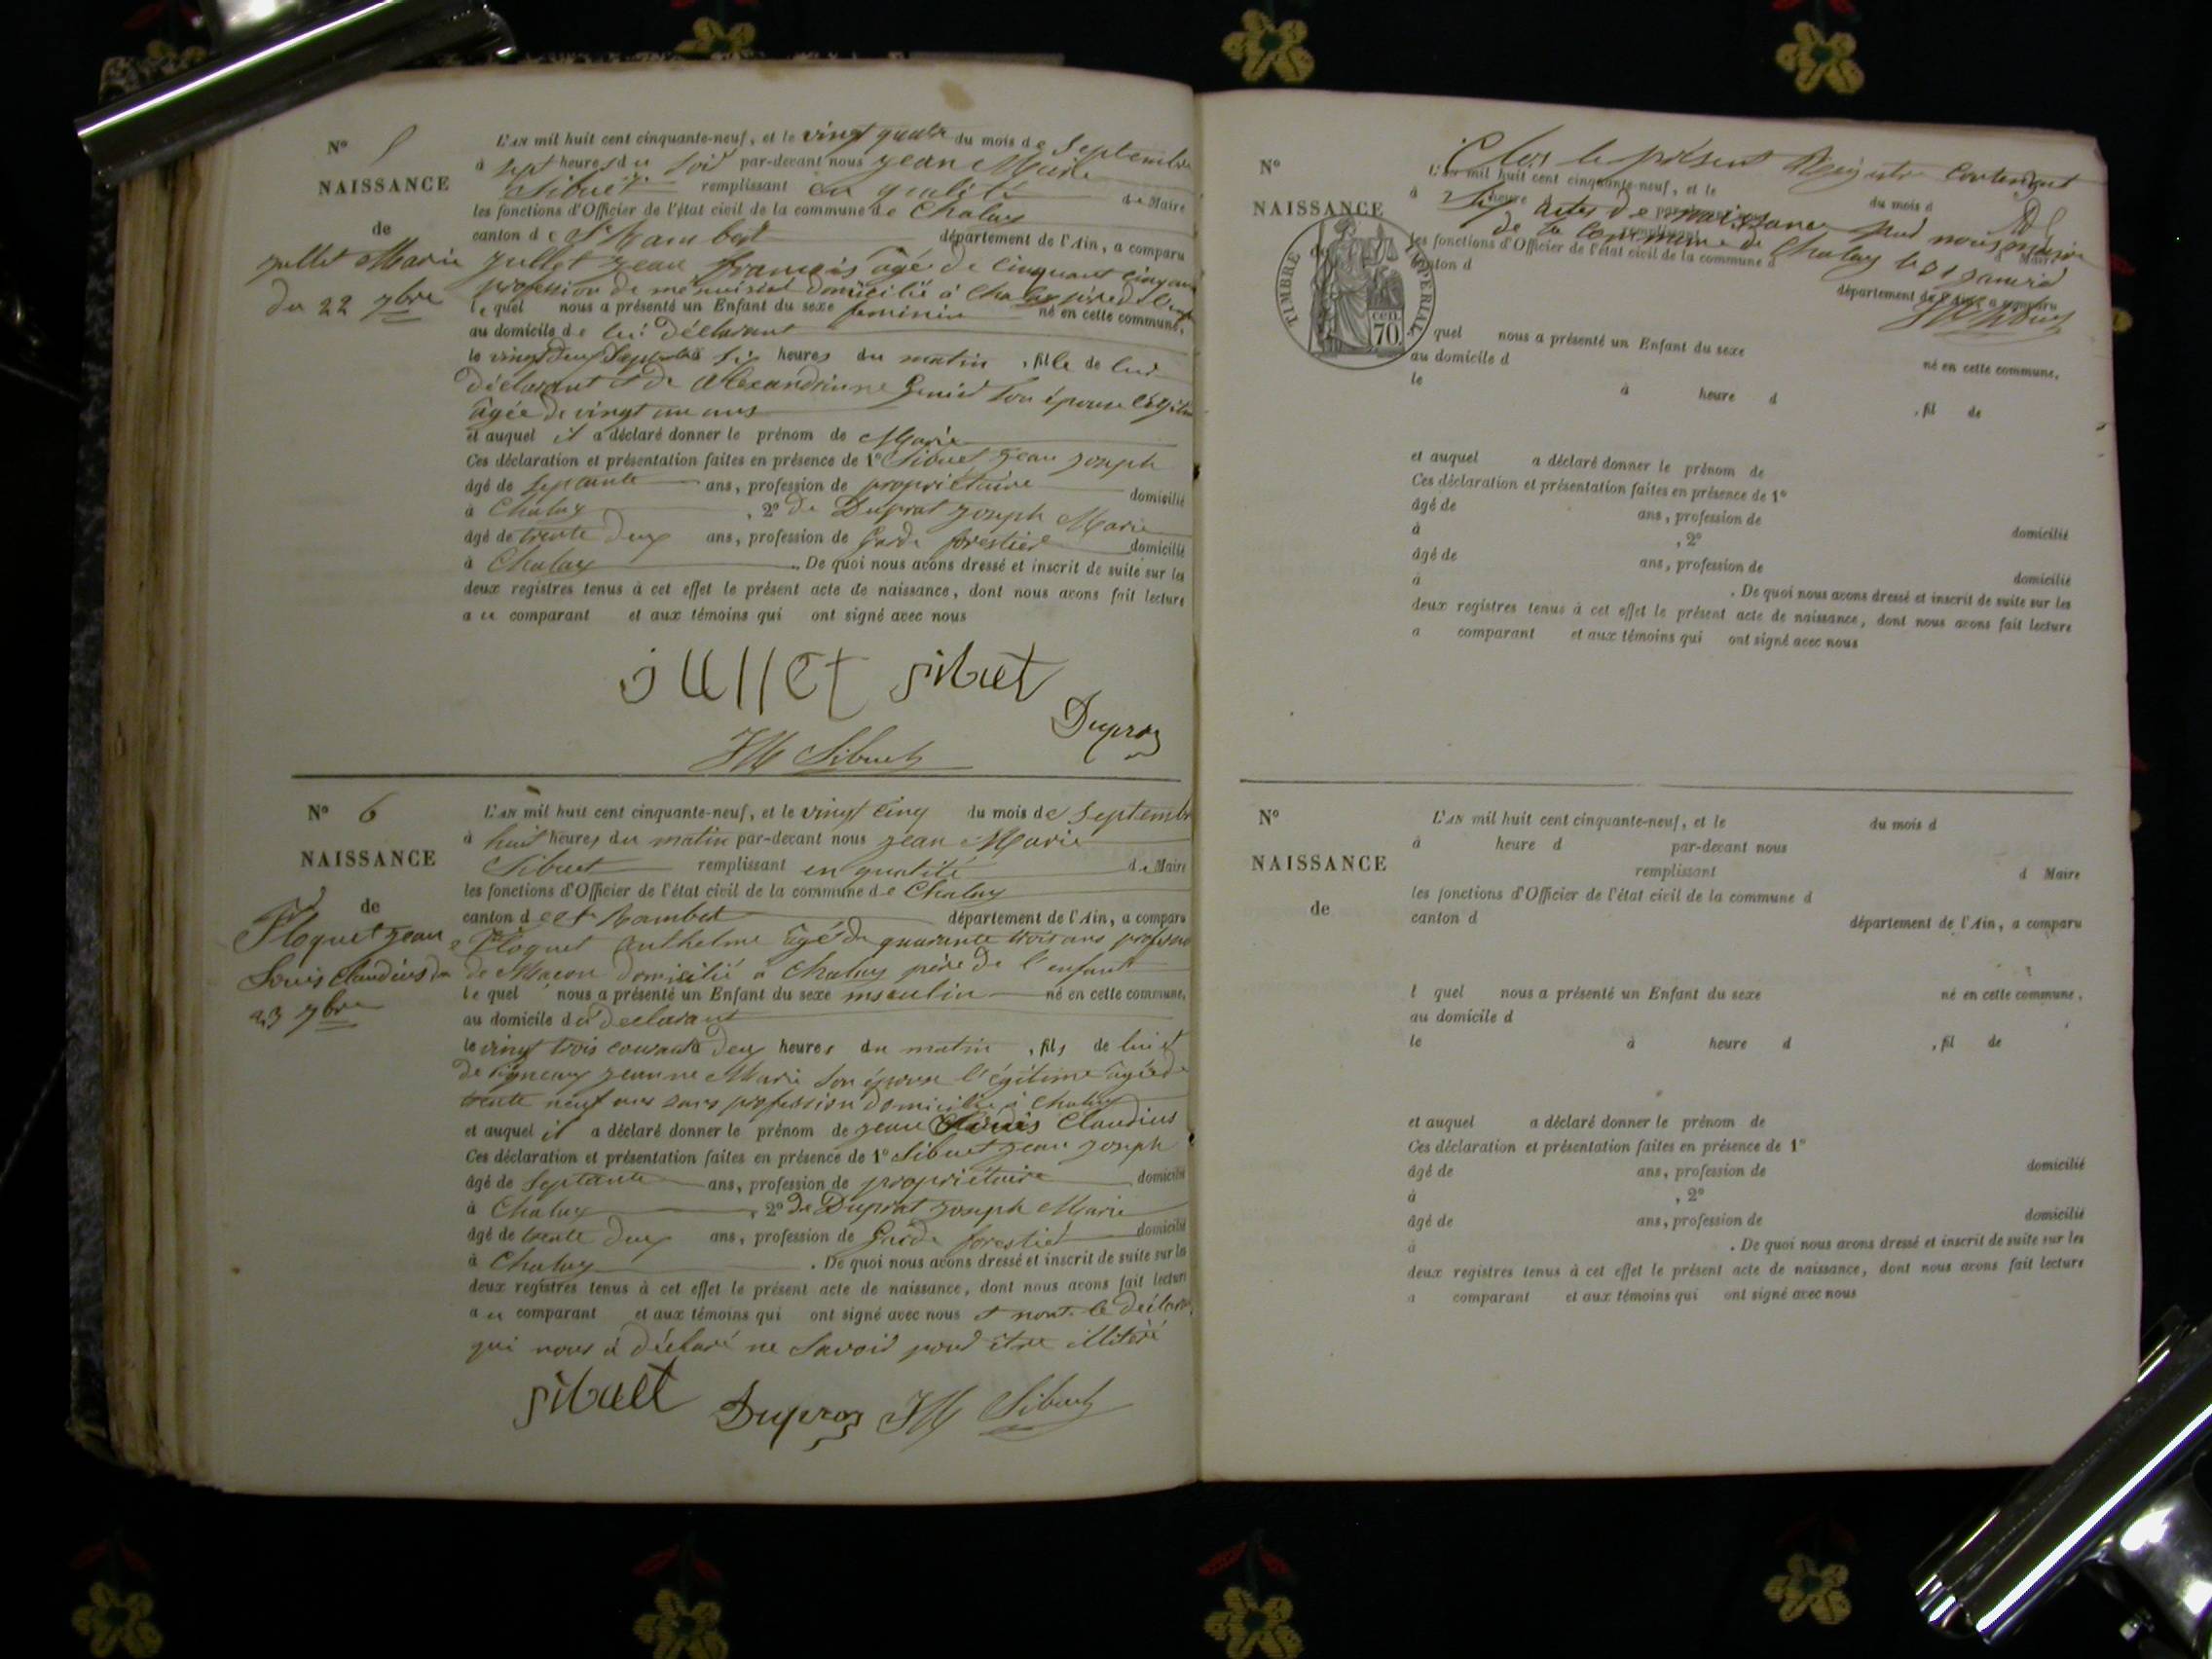 N° 5
NAISSANCE
de
Jullet Marie
du 22 7bre
L'AN mil huit cent cinquante-neuf, et le vingt quatre du mois de Septembre
à sept heures du soir par-devant nous Jean Marie
Sibuet remplissant en qualité de Maire
les fonctions d'Officier de l'état civil de la commune de Chaley
canton de St Rambert département de l'Ain, a comparu
Jullet Jean François âgé de cinquante cinq ans
profession de menuisier domicilié à Chaley père de l'enfant
lequel nous a présenté un Enfant du sexe feminin né en cette commune,
au domicile de lui déclarant
le vingt deux Septembre à six heures du matin, fille de lui
déclarant et de Alexandrinne son épouse légitime
âgée de vingt un ans
et auquel il a déclaré donner le prénom de Marie
Ces déclaration et présentation faites en présence de 1° Sibuet Jean Joseph
âgé de septante ans, profession de propriétaire domicilié
à Chaley, 2° de Duprat Joseph Marie
âgé de trente deux ans, profession de Garde forestier domicilié
à Chaley. De quoi nous avons dressé et inscrit de suite sur les
deux registres tenus à cet effet le présent acte de naissance, dont nous avons fait lecture
a ce comparant et aux témoins qui ont signé avec nous
Jullet Sibuet
Dupraz
JM Sibuet
N° 6
NAISSANCE
de
Floquet Jean
Louis Claudius du
23 7bre
L'AN mil huit cent cinquante-neuf, et le vingt cinq du mois de Septembre
à huit heures du matin par-devant nous Jean Marie
Sibuet remplissant en qualité de Maire
les fonctions d'Officier de l'état civil de la commune de Chaley
canton de St Rambert département de l'Ain, a comparu
Floquet Anthelme âgé de quarante trois ans profession
de Macon domicilié à Chaley père de l'enfant
lequel nous a présenté un Enfant du sexe msculin né en cette commune,
au domicile du declarant
le vingt trois courant à deux heures du matin, fils de lui et
de Jeanne Marie son épouse légitime âgée de
trente neuf ans sans profession domiciliée à Chaley
et auquel il a déclaré donner le prénom de Jean Louis Claudius
Ces déclaration et présentation faites en présence de 1° Sibuet Jean Joseph
âgé de Septante ans, profession de propriétaire domicilié
à Chaley, 2° de Duprat Joseph Marie
âgé de trente deux ans, profession de Garde forestier domicilié
à Chaley. De quoi nous avons dressé et inscrit de suite sur les
deux registres tenus à cet effet le présent acte de naissance, dont nous avons fait lecture
a ce comparant et aux témoins qui ont signé avec nous et non le déclarant
qui nous a déclaré ne savoir pour être illitéré
Sibuet Dupraz JM Sibuet
Clos le présent Registre contenant
Six actes de naissance par nous maire
de la commune de Chaley le 31 janvier
JM Sibuet
TIMBRE IMPÉRIAL
CEN. 70
N°
NAISSANCE
de
L'AN mil huit cent cinquante-neuf, et le du mois d
à heure d par-devant nous
remplissant d Maire
les fonctions d'Officier de l'état civil de la commune d
canton d département de l'Ain, a comparu
quel nous a présenté un Enfant du sexe né en cette commune,
au domicile d
le à heure d , fil de
et auquel a déclaré donner le prénom de
Ces déclaration et présentation faites en présence de 1°
âgé de ans, profession de domicilié
à , 2°
âgé de ans, profession de domicilié
à . De quoi nous avons dressé et inscrit de suite sur les
deux registres tenus à cet effet le présent acte de naissance, dont nous avons fait lecture
a comparant et aux témoins qui ont signé avec nous
N°
NAISSANCE
de
L'AN mil huit cent cinquante-neuf, et le du mois d
à heure d par-devant nous
remplissant d Maire
les fonctions d'Officier de l'état civil de la commune d
canton d département de l'Ain, a comparu
l quel nous a présenté un Enfant du sexe né en cette commune,
au domicile d
le à heure d , fil de
et auquel a déclaré donner le prénom de
Ces déclaration et présentation faites en présence de 1°
âgé de ans, profession de domicilié
à , 2°
âgé de ans, profession de domicilié
à . De quoi nous avons dressé et inscrit de suite sur les
deux registres tenus à cet effet le présent acte de naissance, dont nous avons fait lecture
a comparant et aux témoins qui ont signé avec nous